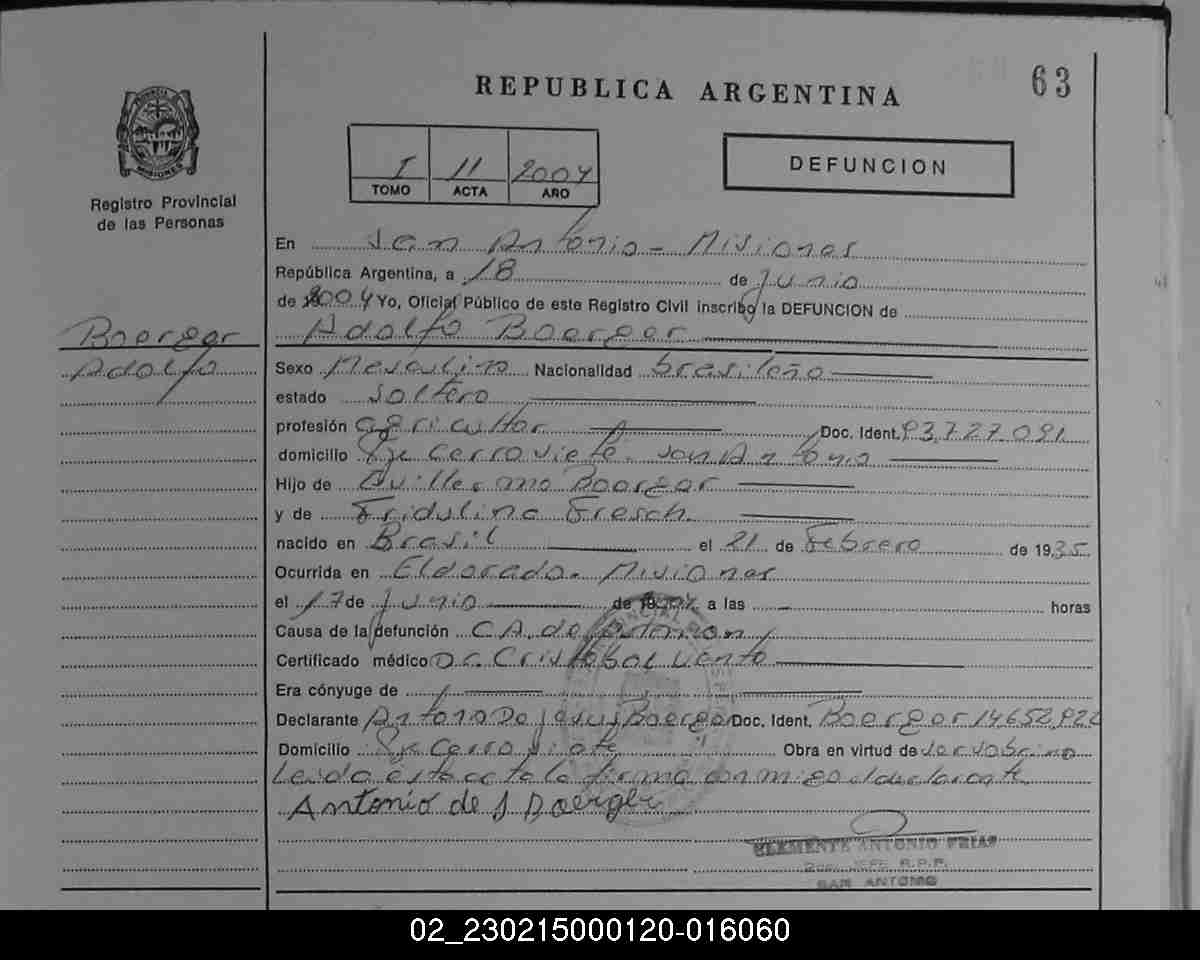 63
REPUBLICA ARGENTINA
PROVINCIA DE MISIONES
Registro Provincial
de las Personas
I 11 2004
TOMO ACTA AÑO
DEFUNCION
Boerger
Adolfo
En San Antonio - Misiones
República Argentina, a 18 de Junio
de 2004 Yo, Oficial Público de este Registro Civil inscribo la DEFUNCION de
Adolfo Boerger
Sexo Masculino Nacionalidad brasileño
estado Soltero
profesión agricultor Doc. Ident. 93.727.091
domicilio Pje Cerro Siete. San Antonio
Hijo de Guillermo Boerger
y de Fridolina Fresch.
nacido en Brasil el 21 de Febrero de 1935
Ocurrida en Eldorado - Misiones
el 17 de Junio de 2004 a las - horas
Causa de la defunción CA. de
Certificado médico Dr. Cristobal
Era cónyuge de
Declarante Antonio De Jesus Boerger Doc. Ident. Boerger 14652.922
Domicilio Pje Cerro Siete Obra en virtud de ser sobrino
Leida esta acta la firma conmigo el declarante
Antonio de J Boerger
CLEMENTE ANTONIO FRIAS
JEFE R.P.P.
SAN ANTONIO
02_230215000120-016060